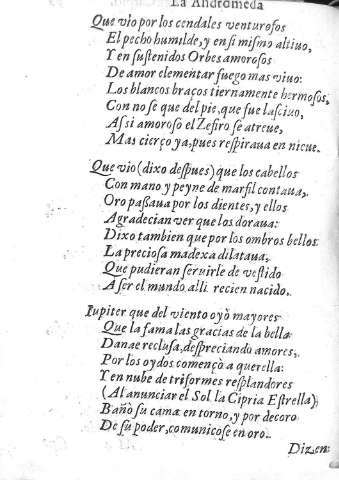 La Andromeda
Que vio por los cendales venturosos
El pecho humilde, y en si mismo altiuo,
Y en sustenidos Orbes amorosos
De amor elementar fuego mas viuo:
Los blancos braços tiernamente hermosos,
Con no se que del pie, que fue lasciuo,
Assi amoroso el Zefiro se atreue,
Mas cierço ya, pues respiraua en nieue.
Que vio (dixo despues) que los cabellos
Con mano y peyne de marfil contaua,
Oro passaua por los dientes, y ellos
Agradecian ver que los doraua:
Dixo tambien que por los ombros bellos
La preciosa madexa dilataua,
Que pudieran seruirle de vestido
A ser el mundo alli recien nacido.
Iupiter que del viento oyò mayores
Que la fama las gracias de la bella
Danae reclusa, despreciando amores,
Por los oydos començò a querella:
Y en nube de triformes resplandores
(Al anunciar el Sol la Cipria Estrella)
Bañò su cama en torno, y por decoro
De su poder, comunicose en oro.
Dizen